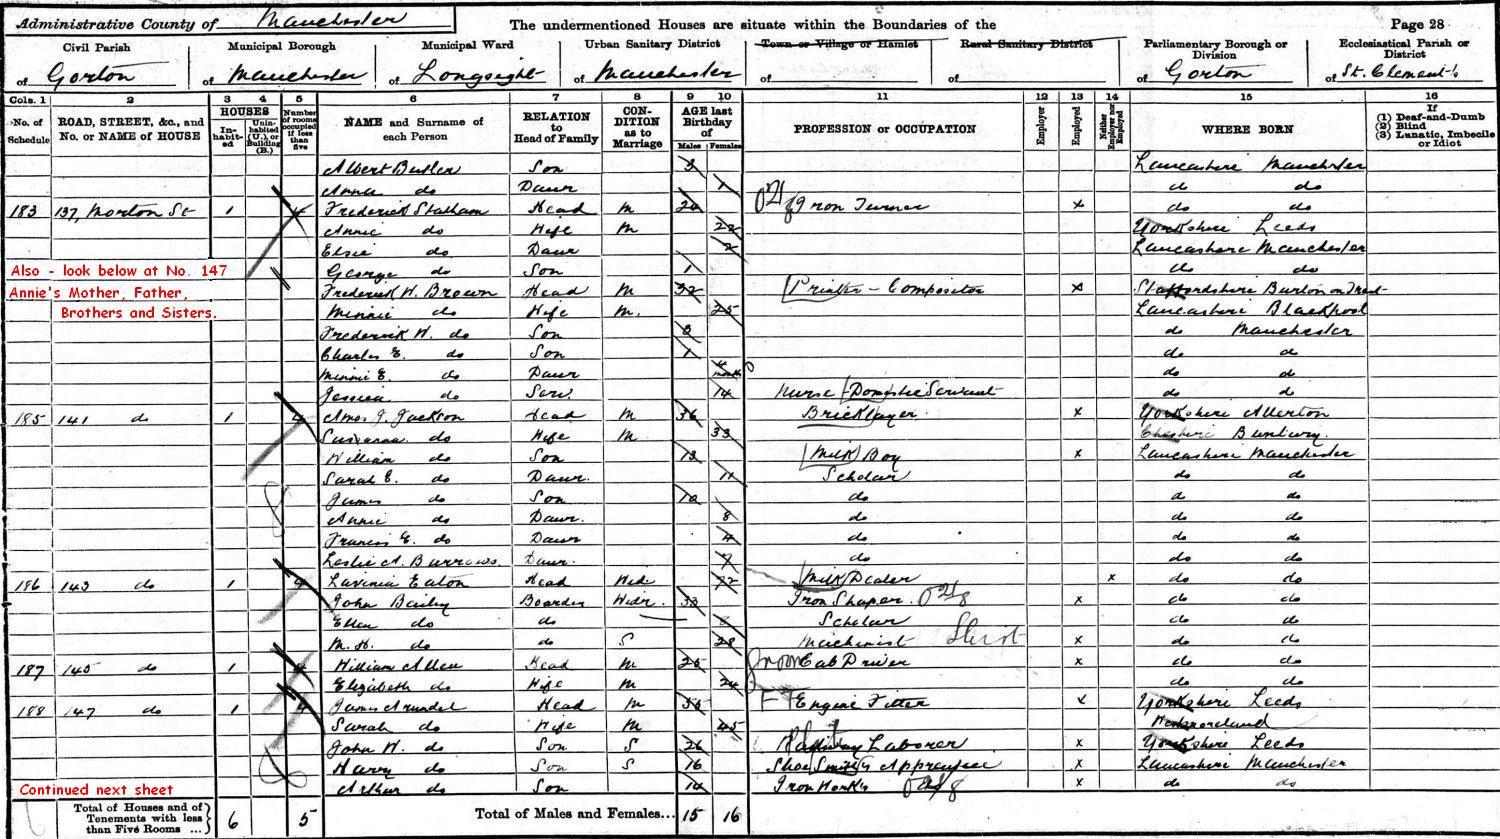 Administrative County of Manchester The undermentioned Houses are situate within the Boundaries of the Page 28
Civil Parish Municipal Borough Municipal Ward Urban Sanitary District Town or Village or Hamlet Rural Sanitary District Parliamentary Borough or Division Ecclesiastical Parish or District
of Gorton of Manchester of Longsight of Manchester of of of Gorton of St. Clement's
Cols. 1 2 3 4 5 6 7 8 9 10 11 12 13 14 15 16
No. of Schedule ROAD, STREET, &c., and No. or NAME of HOUSE HOUSES In-habit-ed Unin-habited (U.), or Building (B.) Number of rooms occupied if less than five NAME and Surname of each Person RELATION to Head of Family CON-DITION as to Marriage AGE last Birthday of Males Females PROFESSION or OCCUPATION Employer Employed Neither Employer nor Employed WHERE BORN If (1) Deaf-and-Dumb (2) Blind (3) Lunatic, Imbecile or Idiot
Albert Butler Son 3 Lancashire Manchester
Anna do Daur 1 do do
183 137, Morton St 1 4 Frederick Statham Head M 24 Iron Turner x do do
Annie do Wife M 22 Yorkshire Leeds
Elsie do Daur 2 Lancashire Manchester
Also - look below at No. 147
George do Son 1 do do
Annie's Mother, Father,
Frederick W. Brown Head M 32 Printer - Compositor x Staffordshire Burton on Trent
Brothers and Sisters.
Minnie do Wife M. 25 Lancashire Blackpool
Frederick W. do Son 3 do Manchester
Charles E. do Son 1 do do
Minnie E. do Daur months do do
Jessica do Serv. 14 Nurse Domestic Servant do do
185 141 do 1 4 Amos J. Jackson Head M 36 Bricklayer x Yorkshire Allerton
Susanna do Wife M 33 Cheshire Bunbury.
William do Son 13 Milk Boy x Lancashire Manchester
Sarah E. do Daur. 11 Scholar do do
James do Son 10 do do do
Annie do Daur. 8 do do do
Francis E. do Daur 4 do do do
Leslie A. Burrows Daur. 7 do do do
186 143 do 1 4 Lavinia Eaton Head Wid 72 Milk Dealer x do do
John Bailey Boarder Widr. 33 Iron Shaper. x do do
Ellen do do Scholar do do
M. H. do do S 28 Machinist Shirt x do do
187 145 do 1 4 William Allen Head M 25 Groom Cab Driver x do do
Elizabeth do Wife M 24 do do
188 147 do 1 4 James Arundel Head M Engine Fitter x Yorkshire Leeds
Sarah do Wife M 45 Westmoreland
John W. do Son S 26 Railway Laborer x Yorkshire Leeds
Harry do Son S 16 Shoe Smith's Apprentice x Lancashire Manchester
Continued next sheet
Arthur do Son 14 Iron Works x do do
Total of Houses and of Tenements with less than Five Rooms ... 6 5 Total of Males and Females... 15 16